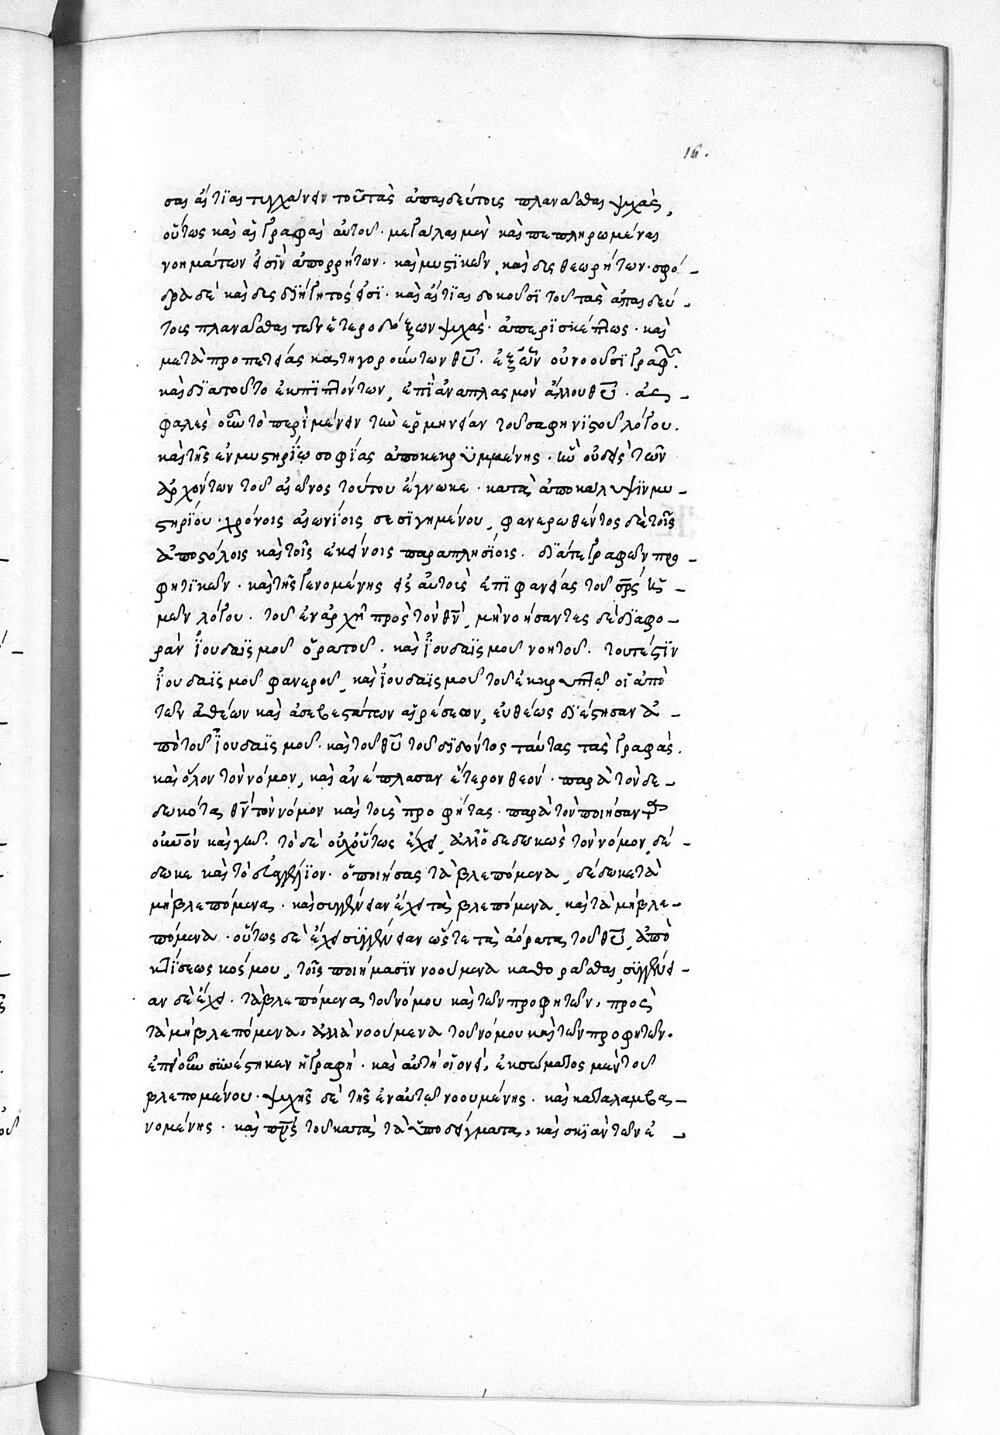 16.
σαι αἰτίαι τυγχάνειν τοῦ τὰς ἀπαιδεύτοις πλανᾶσθαι ψυχὰς,
οὕτως καὶ αἱ γραφαὶ αὐτοῦ· μεγάλαι μὲν καὶ πεπληρωμέναι
νοημάτων εἰσὶν ἀπορρήτων· καὶ μυστικῶν, καὶ δυς θεωρήτων· σφό-
δρα δὲ καὶ δυς διήγητός εἰσι· καὶ αἰτίαι δοκοῦσι τοῦ τὰς ἀπαιδεύ-
τοις πλανᾶσθαι τῶν ἑτεροδόξων ψυχὰς· ἀπερισκέπτως· καὶ
μετὰ προπετείας κατηγορούντων θῦ· ἐξ ὧν οὐ νοοῦσι γραφῶν·
καὶ διὰ τοῦτο ἐκπιπτόντων, ἐπὶ ἀναπλασμὸν ἄλλου θῦ· ἀς-
φαλὲς οὖν τὸ περιμένειν τὴν ἑρμηνείαν τοῦ σαφηνίζου λόγου.
καὶ τῆς ἐν μυστηρίῳ σοφίας ἀποκεκρυμμένης· ἣν οὐδεὶς τῶν
ἀρχόντων τοῦ αἰῶνος τούτου ἔγνωκε· κατὰ ἀποκάλυψιν μυ-
στηρίου· χρόνοις αἰωνίοις σεσιγημένου, φανερωθέντος δὲ τοῖς
ἀποστόλοις καὶ τοῖς ἐκείνοις παραπλησίοις. διά τε γραφῶν προ-
φητικῶν· καὶ τῆς γενομένης εἰς αὐτοὺς ἐπιφανείας τοῦ σρς ἡ-
μῶν λόγου· τοῦ ἐν ἀρχῇ πρὸς τὸν θν, μὴ νοήσαντες δὲ διαφο-
ρὰν ἰουδαϊσμοῦ ὁρατοῦ· καὶ ἰουδαϊσμοῦ νοητοῦ· τουτέστιν
ἰουδαϊσμοῦ φανεροῦ, καὶ ἰουδαϊσμοῦ τοῦ ἐν κρυπτῷ οἱ ἀπὸ
τῶν ἀθέων καὶ ἀσεβεστάτων αἱρέσεων, εὐθέως διέστησαν ἀ-
πὸ τοῦ ἰουδαϊσμοῦ· καὶ τοῦ θῦ τοῦ διδόντος ταύτας τὰς γραφάς·
καὶ ὅλον τὸν νόμον, καὶ ἀνέπλασαν ἕτερον θεόν· παρὰ τὸν δε-
δωκότα θν τὸν νόμον καὶ τοὺς προφήτας· παρὰ τὸν ποιήσαντα
οὐνὸν καὶ γῆν· τὸ δὲ οὐχ οὕτως ἔχει, ἀλλ' ὁ δεδωκὼς τὸν νόμον, δέ-
δωκε καὶ τὸ εὐαγγέλιον· ὁ ποιήσας τὰ βλεπόμενα, δέδωκε τὰ
μὴ βλεπόμενα· καὶ συγγένειαν ἔχει τὰ βλεπόμενα, καὶ τὰ μὴ βλε-
πόμενα· οὕτως δὲ ἔχει συγγένειαν ὥστε τὰ ἀόρατα τοῦ θῦ, ἀπὸ
κτίσεως κόσμου, τοῖς ποιήμασιν νοούμενα καθορᾶσθαι, συγγένει-
αν δὲ ἔχει· τὰ βλεπόμενα τοῦ νόμου καὶ τῶν προφητῶν, πρὸς
τὰ μὴ βλεπόμενα, ἀλλὰ νοούμενα τοῦ νόμου καὶ τῶν προφητῶν.
ἐπεὶ οὖν συνέστηκεν ἡ γραφὴ· καὶ αὐτὴ οἱονεί, ἐκ σώματος μὲν τοῦ
βλεπομένου· ψυχῆς δὲ τῆς ἐν αὐτῷ νοουμένης· καὶ καταλαμβα-
νομένης· καὶ πνς τοῦ κατὰ τὰ ὑποδείγματα, καὶ σκιὰν τῶν ἐ-